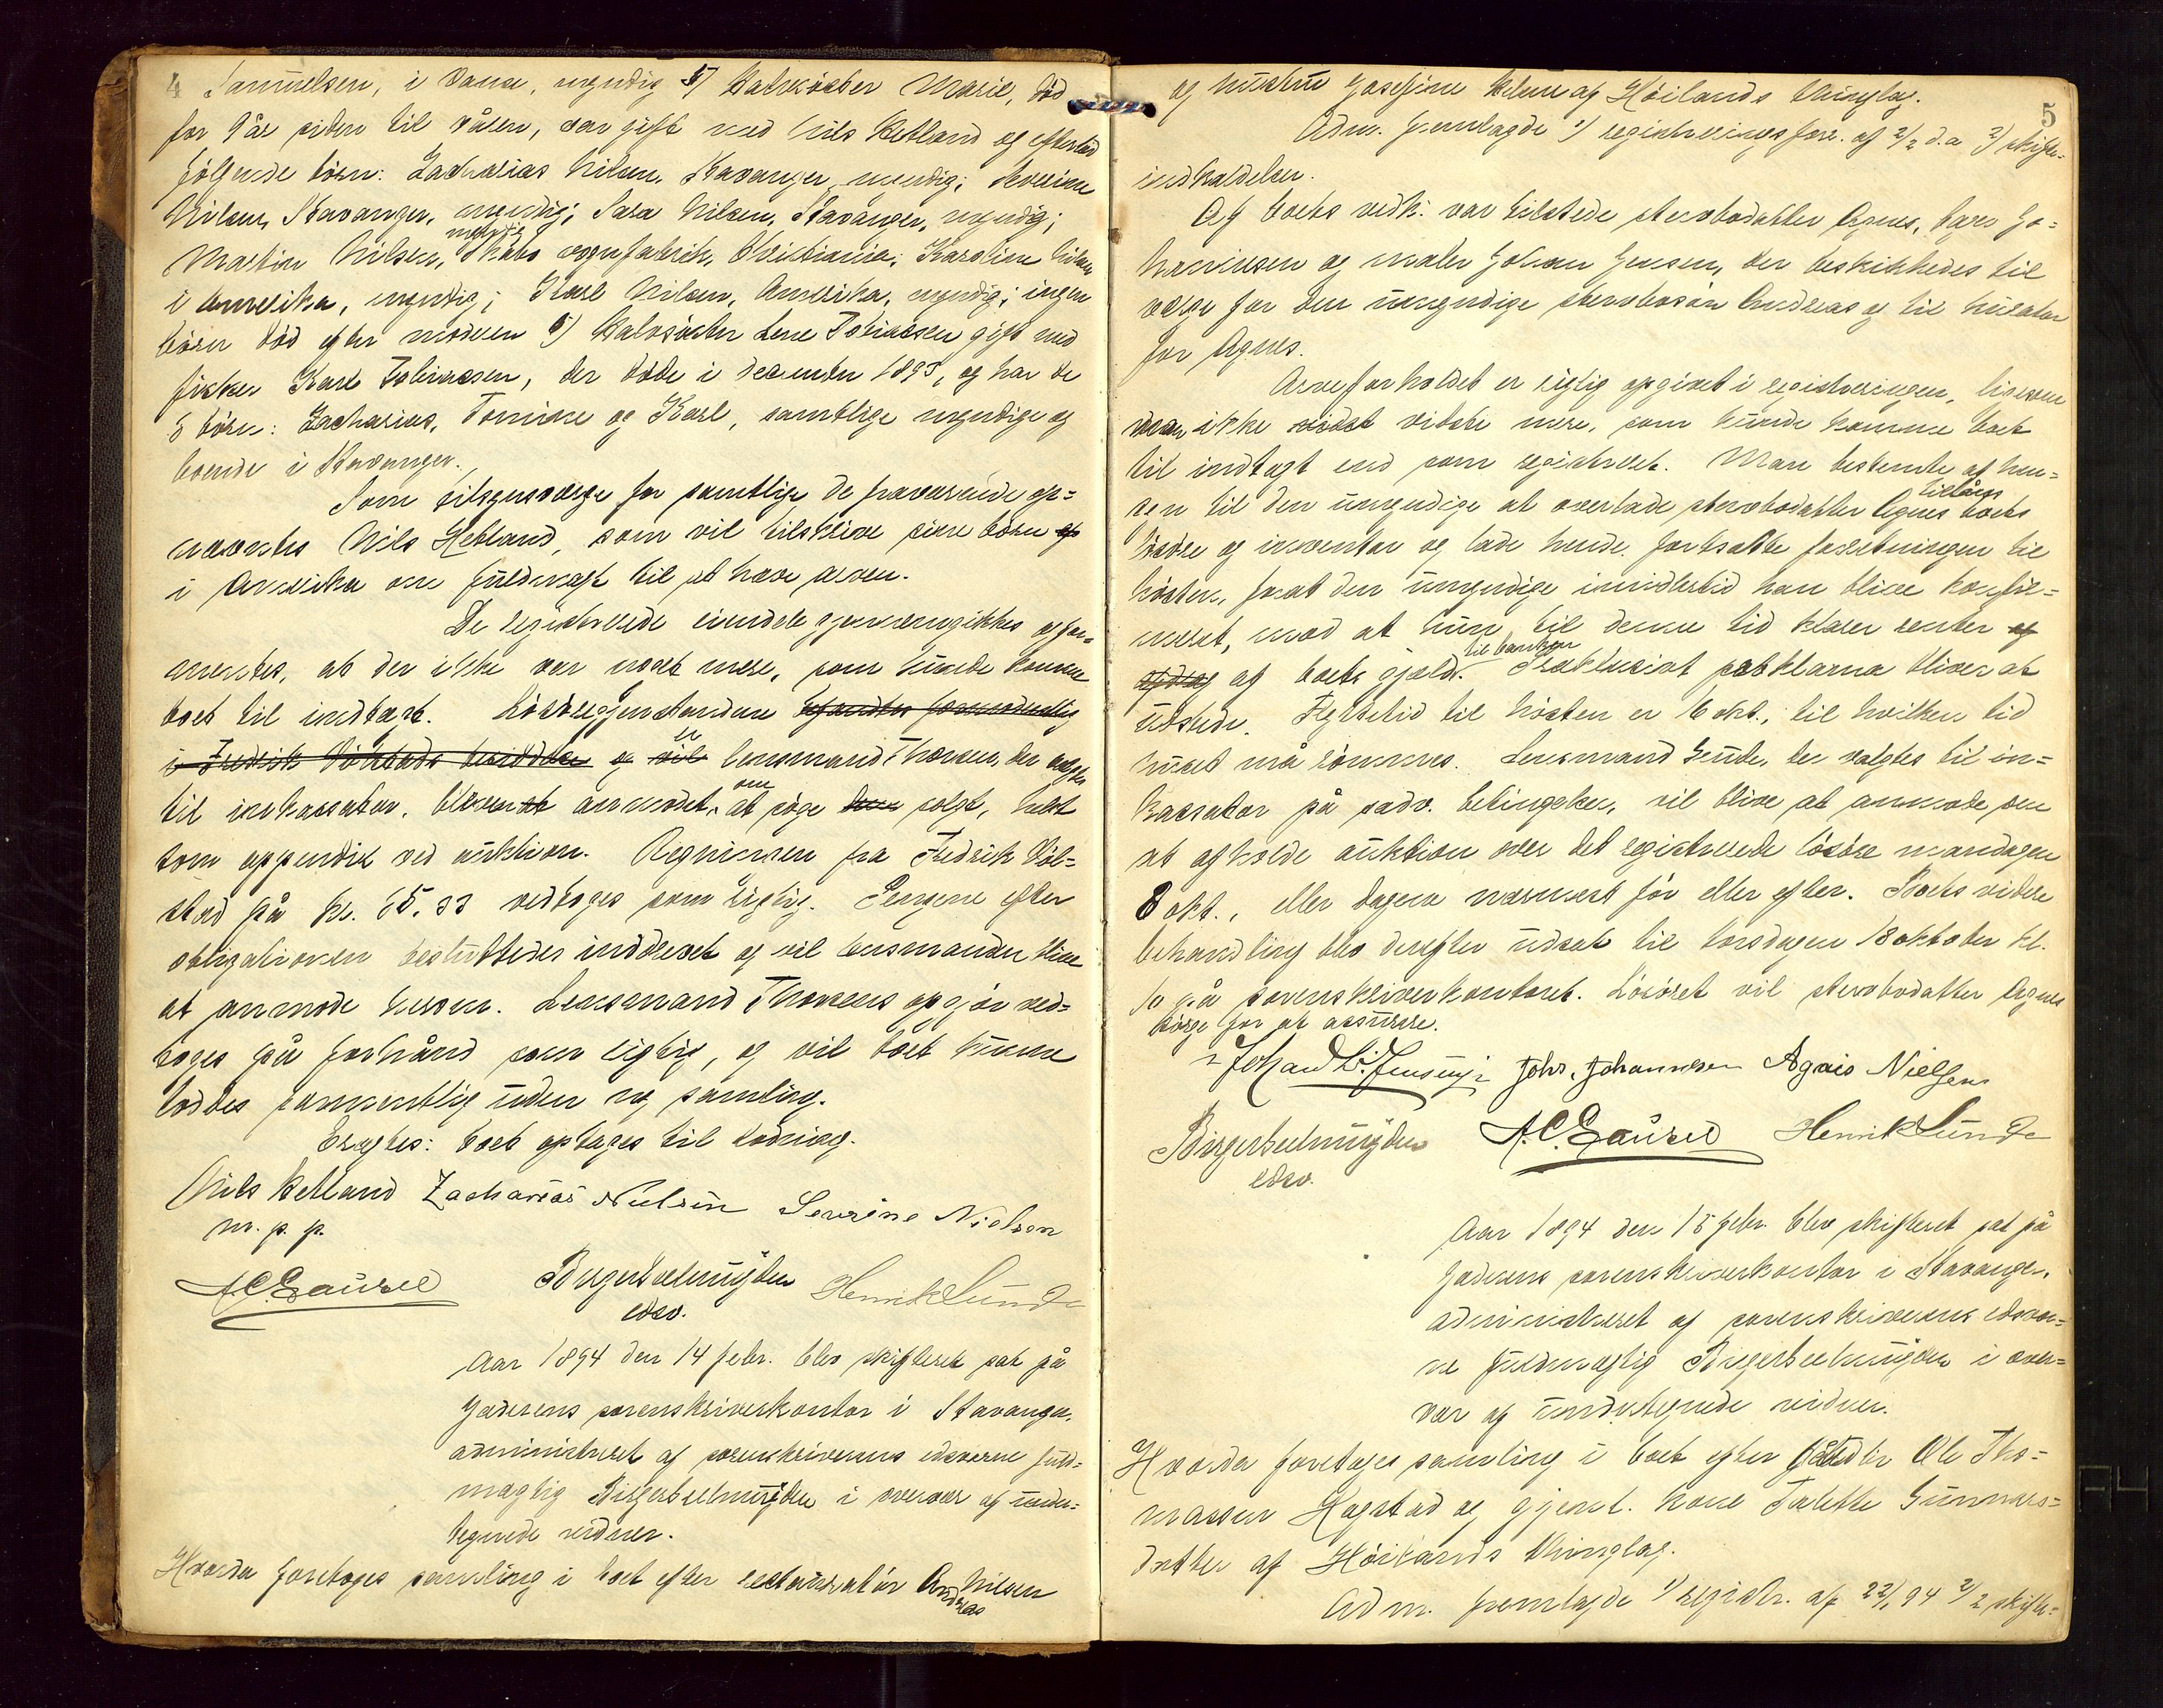 4 Samuelsen, i Dana, myndig 5) Halvsöster Marie, död
for 9 år siden til våren, var gift med Nils Hetland og efterlod
fölgende börn: Zacharias Nilsen, Stavanger, myndig; Severine
Nilsen, Stavanger, myndig; Sara Nilsen, Stavanger, myndig;
Martin Nilsen, myndig Skabo vognfabrik, Christiania; Karoline Nilsen
i Amerika, myndig; Karl Nilsen, Amerika, myndig; ingen
börn död efter moderen 6) Halvsöster Lene Tobiassen gift med
fisker Karl Tobiassen, der döde i december 1893, og har de
3 börn: Zacharias, Tomine og Karl, samtlige myndige og
boende i Stavanger.
Som tilsynsværge for samtlige de fraværende op=
nævntes Nils Hetland, som vil tilskrive sine börn
i Amerika om fuldmagt til at hæve arven.
De registrerede eiendele gjennemgikkes og for-
mentes, at der ikke var noget mere, som kunde komme
boet til indtægt. Lösöregjenstandene befandtes formodentlig
i Fredrik Völstads besiddelse og vil er lensmand Thorsen, der valgtes
til inkassator, blevet anmodet om at söge solgt, helst
som appendix ved auktion. Regningen fra Fredrik Völ=
stad på kr. 65.33 vedtoges som rigtig. Pengene efter
obligationen besluttedes inddrevet og vil lensmanden blive
at anmode herom. Lensmand Thorsens opgjör ved=
toges på forhånd som rigtig, og vil boet kunne
loddes sammentlig uden ny samling.
Eragtes: boet optages til lodning.
Nils Hetland Zacharias Nielsen Severine Nielsen
m. p. p.
A.C. Gaurel Birger Seelmuijden Henrik Sunde
edsv.
Aar 1894 den 14 febr. blev skifteret sat på
Jæderens sorenskriverkontor i Stavanger,
administreret af sorenskriverens edsvorne fuld=
mægtig Birger Seelmuijden i overvær af under=
tegnede vidner.
Hvorda foretoges samling i boet efter restauratör Andreas Nilsen
5
og hustru Josefine Helene af Höilands thinglag.
Adm. fremlagde 1) registreringsforr. af 2/2 d.a 2) skifte-
indkaldelser.
Af boets vedk. var tilstede stervbodatter Agnes, Lars Jo=
hannesen og maler Johan Jensen, der beskikkedes til
værge for den umyndige stervbosön Andreas og til kurator
for Agnes.
Arveforholdet er rigtig opgivet i registreringen, ligesom
man ikke vidste mere, som kunde komme boet
til indtægt end som registreret. Man bestemte af hen=
syn til den umyndige at overlade stervbodatter Agnes tillåns boets
lösöre og inventar og lade hende fortsætte forretningen til
hösten, forat den umyndige imidlertid kan blive konfir=
meret, mod at hun til denne tid klarer renter og
afdrag af boets gjæld til banken. Præklusivt proklama bliver at
udstede. Flyttetid til hösten er 16 okt., til hvilken tid
huset må römmes. Lensmand Gude, der valgtes til in=
kassator på sædv. betingelser, vil blive at anmode om
at afholde auktion over det registrerede lösöre mandagen
8 okt., eller dagene nærmest för eller efter. Boets videre
behandling blev derefter udsat til torsdagen 18 oktober kl.
10 på sorenskriverkontoret. Lösöret vil stervbodatter Agnes
sörge for at assurere.
Johan L. Jensen Johs. Johannesen Agnis Nielsen
Birger Seelmuijden A.C. Gaurel Henrik Sunde
edsv.
Aar 1894 den 15 febr. blev skifteret sat på
Jæderens sorenskriverkontor i Stavanger,
administreret af sorenskriverens edsvor=
ne fuldmægtig Birger Seelmuijden i over=
vær af undertegnede vidner.
Hvorda foretoges samling i boet efter Ole Tho=
massen Hogstad og gjenl. kone Talette Gunnars=
datter af Höilands thinglag.
Adm. fremlagde 1) registr. af 22/1 94 2) skifte=